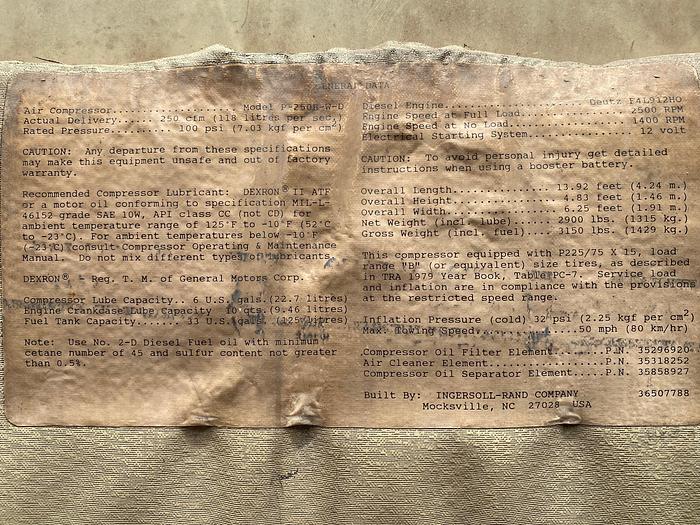 GENERAL DATA
Air Compressor.................. Model P-250B-W-D
Actual Delivery....... 250 cfm (118 litres per sec.)
Rated Pressure........ 100 psi (7.03 kgf per cm²)
CAUTION: Any departure from these specifications
may make this equipment unsafe and out of factory
warranty.
Recommended Compressor Lubricant: DEXRON® II ATF
or a motor oil conforming to specification MIL-L-
46152 grade SAE 10W, API class CC (not CD) for
ambient temperature range of 125°F to -10°F (52°C
to -23°C). For ambient temperatures below -10°F
(-23°C) consult Compressor Operating & Maintenance
Manual. Do not mix different types lubricants.
DEXRON® - Reg. T. M. of General Motors Corp.
Compressor Lube Capacity.. 6 U.S. gals. (22.7 litres)
Engine Crankcase Lube Capacity 10 qts. (9.46 litres)
Fuel Tank Capacity...... 33 U.S. gals. (125 litres)
Note: Use No. 2-D Diesel Fuel oil with minimum
cetane number of 45 and sulfur content not greater
than 0.5%.
Diesel Engine.................... Deutz F4L912HO
Engine Speed at Full Load.............. 2500 RPM
Engine Speed at No Load................ 1400 RPM
Electrical Starting System.............. 12 volt
CAUTION: To avoid personal injury get detailed
instructions when using a booster battery.
Overall Length................ 13.92 feet (4.24 m.)
Overall Height................. 4.83 feet (1.46 m.)
Overall Width.................. 6.25 feet (1.91 m.)
Net Weight (incl. lube)....... 2900 lbs. (1315 kg.)
Gross Weight (incl. fuel)..... 3150 lbs. (1429 kg.)
This compressor equipped with P225/75 X 15, load
range "B" (or equivalent) size tires, as described
in TRA 1979 Year Book, Table PC-7. Service load
and inflation are in compliance with the provisions
at the restricted speed range.
Inflation Pressure (cold) 32 psi (2.25 kgf per cm²)
Max. Towing Speed................ 50 mph (80 km/hr)
Compressor Oil Filter Element....... P.N. 35296920
Air Cleaner Element................. P.N. 35318252
Compressor Oil Separator Element.... P.N. 35858927
Built By: INGERSOLL-RAND COMPANY 36507788
Mocksville, NC 27028 USA